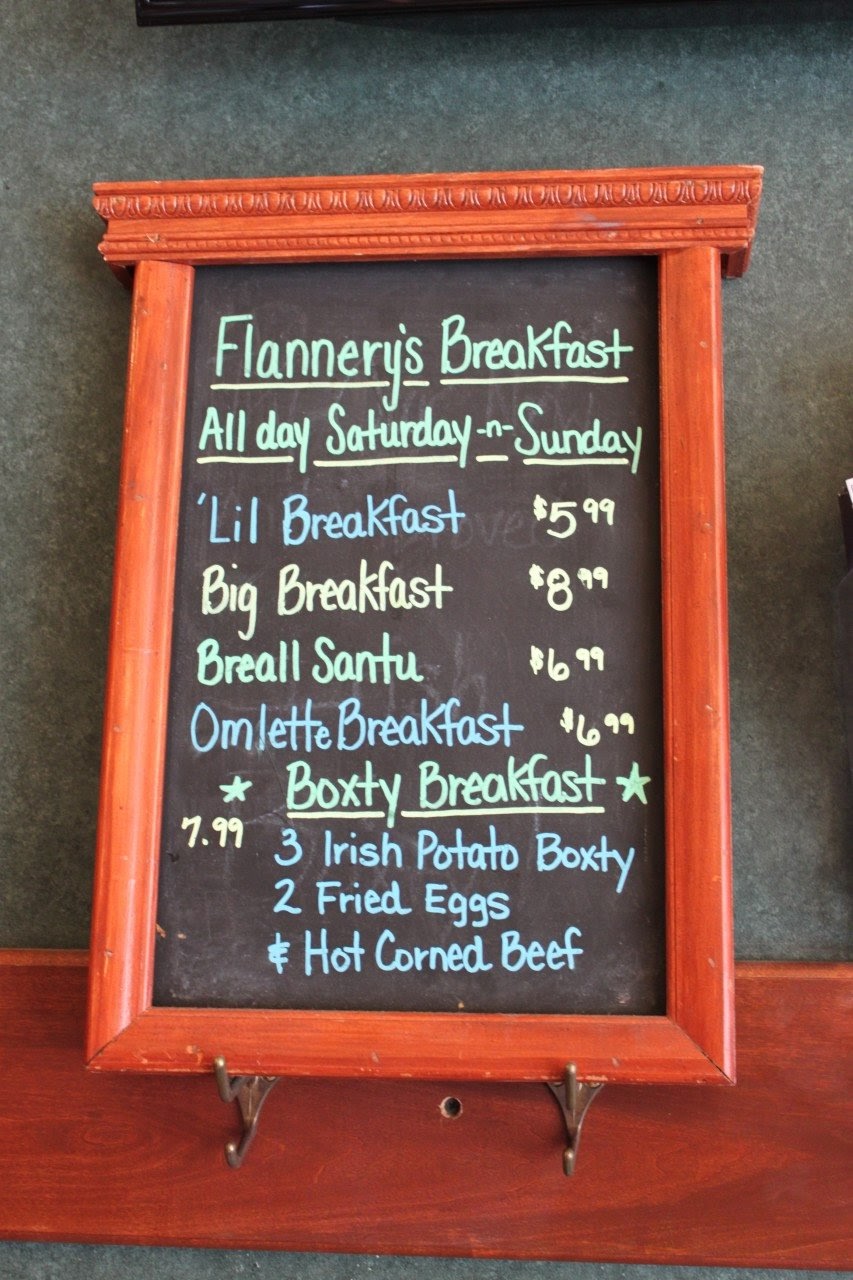 Flannery's Breakfast
All day Saturday -n- Sunday
'Lil Breakfast $5.99
Big Breakfast $8.99
Breall Santu $6.99
Omlette Breakfast $6.99
Boxty Breakfast
7.99
3 Irish Potato Boxty
2 Fried Eggs
& Hot Corned Beef